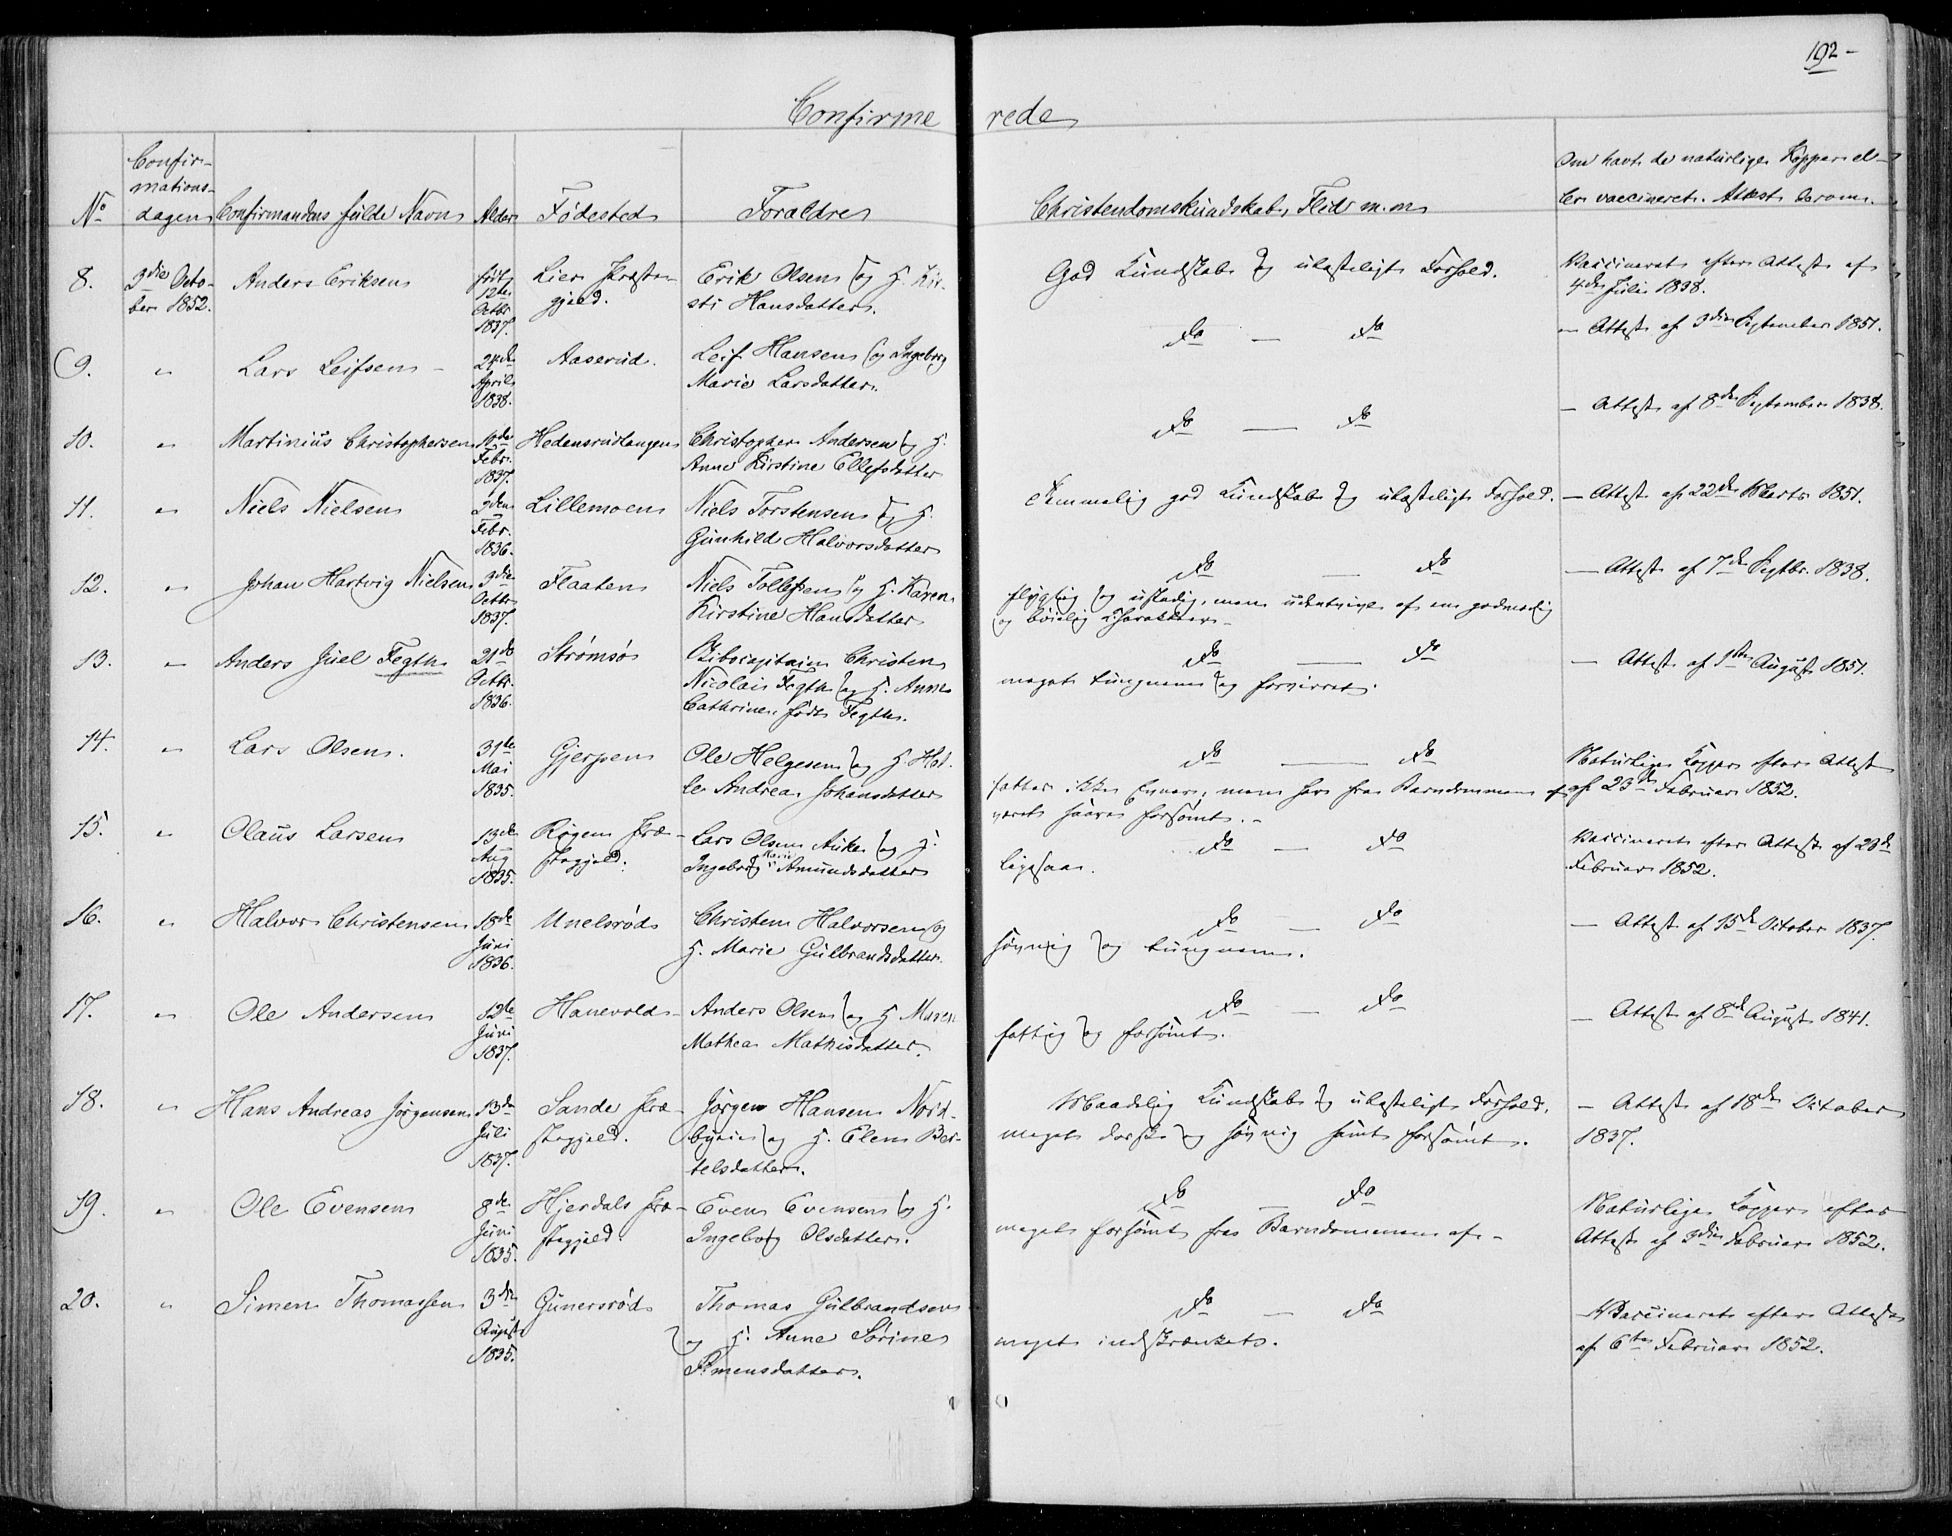 192 –
Confirmerede
No
Confirmationsdagen
Confirmandens fulde Navn
Alder
Fødested
Forældre
Christendomskundskab, Flid m.m
Om havt de naturlige Kopper eller vaccineret. Attest derom.
8. 3die October 1852. Anders Eriksen født 12te Octbr 1837. Lier Præstegjeld. Erik Olsen og H. Kirsti Hansdatter. God Kundskab og ulasteligt Forhold. Vaccineret efter Attest af 4de Juli 1838.
9. " Lars Leifsen – 24de April 1838. Aaserud. Leif Hansen og Ingeborg Marie Larsdatter. do – do – Attest af 3die September 1851.
10. " Martinius Christophersen Febr. 1837. Hedensrudtangen Christopher Andersen og H. Anne Kirstine Ellefsdatter do – do – Attest af 8de September 1838.
11. " Niels Nielsen 2den Febr. 1836. Lillemoen Niels Torstensen og H. Gunhild Halvorsdatter Temmelig god Kundskab og ulasteligt Forhold. – Attest af 22de Marts 1851.
12. " Johan Hartvig Nielsen 3die Octbr 1837. Flaaten Niels Tollefsen og H. Karen Kirstine Hansdatter do – do flygtig og ustadig, men af en godmodig og bøielig Charakter. – Attest af 7de Septbr. 1838.
13. " Anders Juel Fegth 21de Octbr. 1836. Strømsø Skibscapitain Christen Nicolai Fegth og H. Anne Cathrine, født Fegth. do – do meget tungnem og forvirret. – Attest af 1ste August 1851.
14. " Lars Olsen. 31te Mai 1835. Gjerpen Ole Helgesen og H. Helle Andrea Johansdatter do – do fatter ikke men har fra Barndommen af været saare forsømt. – Naturlige Kopper efter Attest af 23de Februar 1852.
15. " Claus Larsen 13de Aug 1835. Røgen Præstegjeld. Lars Olsen Auke og H. Ingeborg Marie Amundsdatter do – do ligesaa. Vaccineret efter Attest af 23de Februar 1852.
16. " Halvor Christensen 18de Juni 1836. Unelsrød Christen Halvorsen og H. Marie Gulbrandsdatter. do – do søvnig og tungnem. – Attest af 15de October 1837.
17. " Ole Andersen 12te Juni 1837. Hanevold Anders Olsen og H Maren Mathea Mathisdatter. do – do fattig og forsømt. – Attest af 8de August 1841.
18. " Hans Andreas Jørgensen 13de Juli 1837. Sande Præstegjeld. Jørgen Hansen Nordbyeie og H. Elen Bertelsdatter. Maadelig Kundskab og ulasteligt Forhold. meget dorsk og søvnig samt forsømt. – Attest af 18de October 1837.
19. " Ole Evensen 8de Juni 1835. Hjerdals Præstegjeld. Even Evensen og H. Ingeborg Olsdatter. do – do meget forsømt fra Barndommen af. – Naturlige Kopper efter Attest af 3die Februar 1852.
20. " Simen Thomassen 3die August 1835. Gunersrød Thomas Gulbrandsen og H. Anne Sørine Simensdatter. do – do meget indskrænket. Vaccineret efter Attest af 6te Februar 1852.